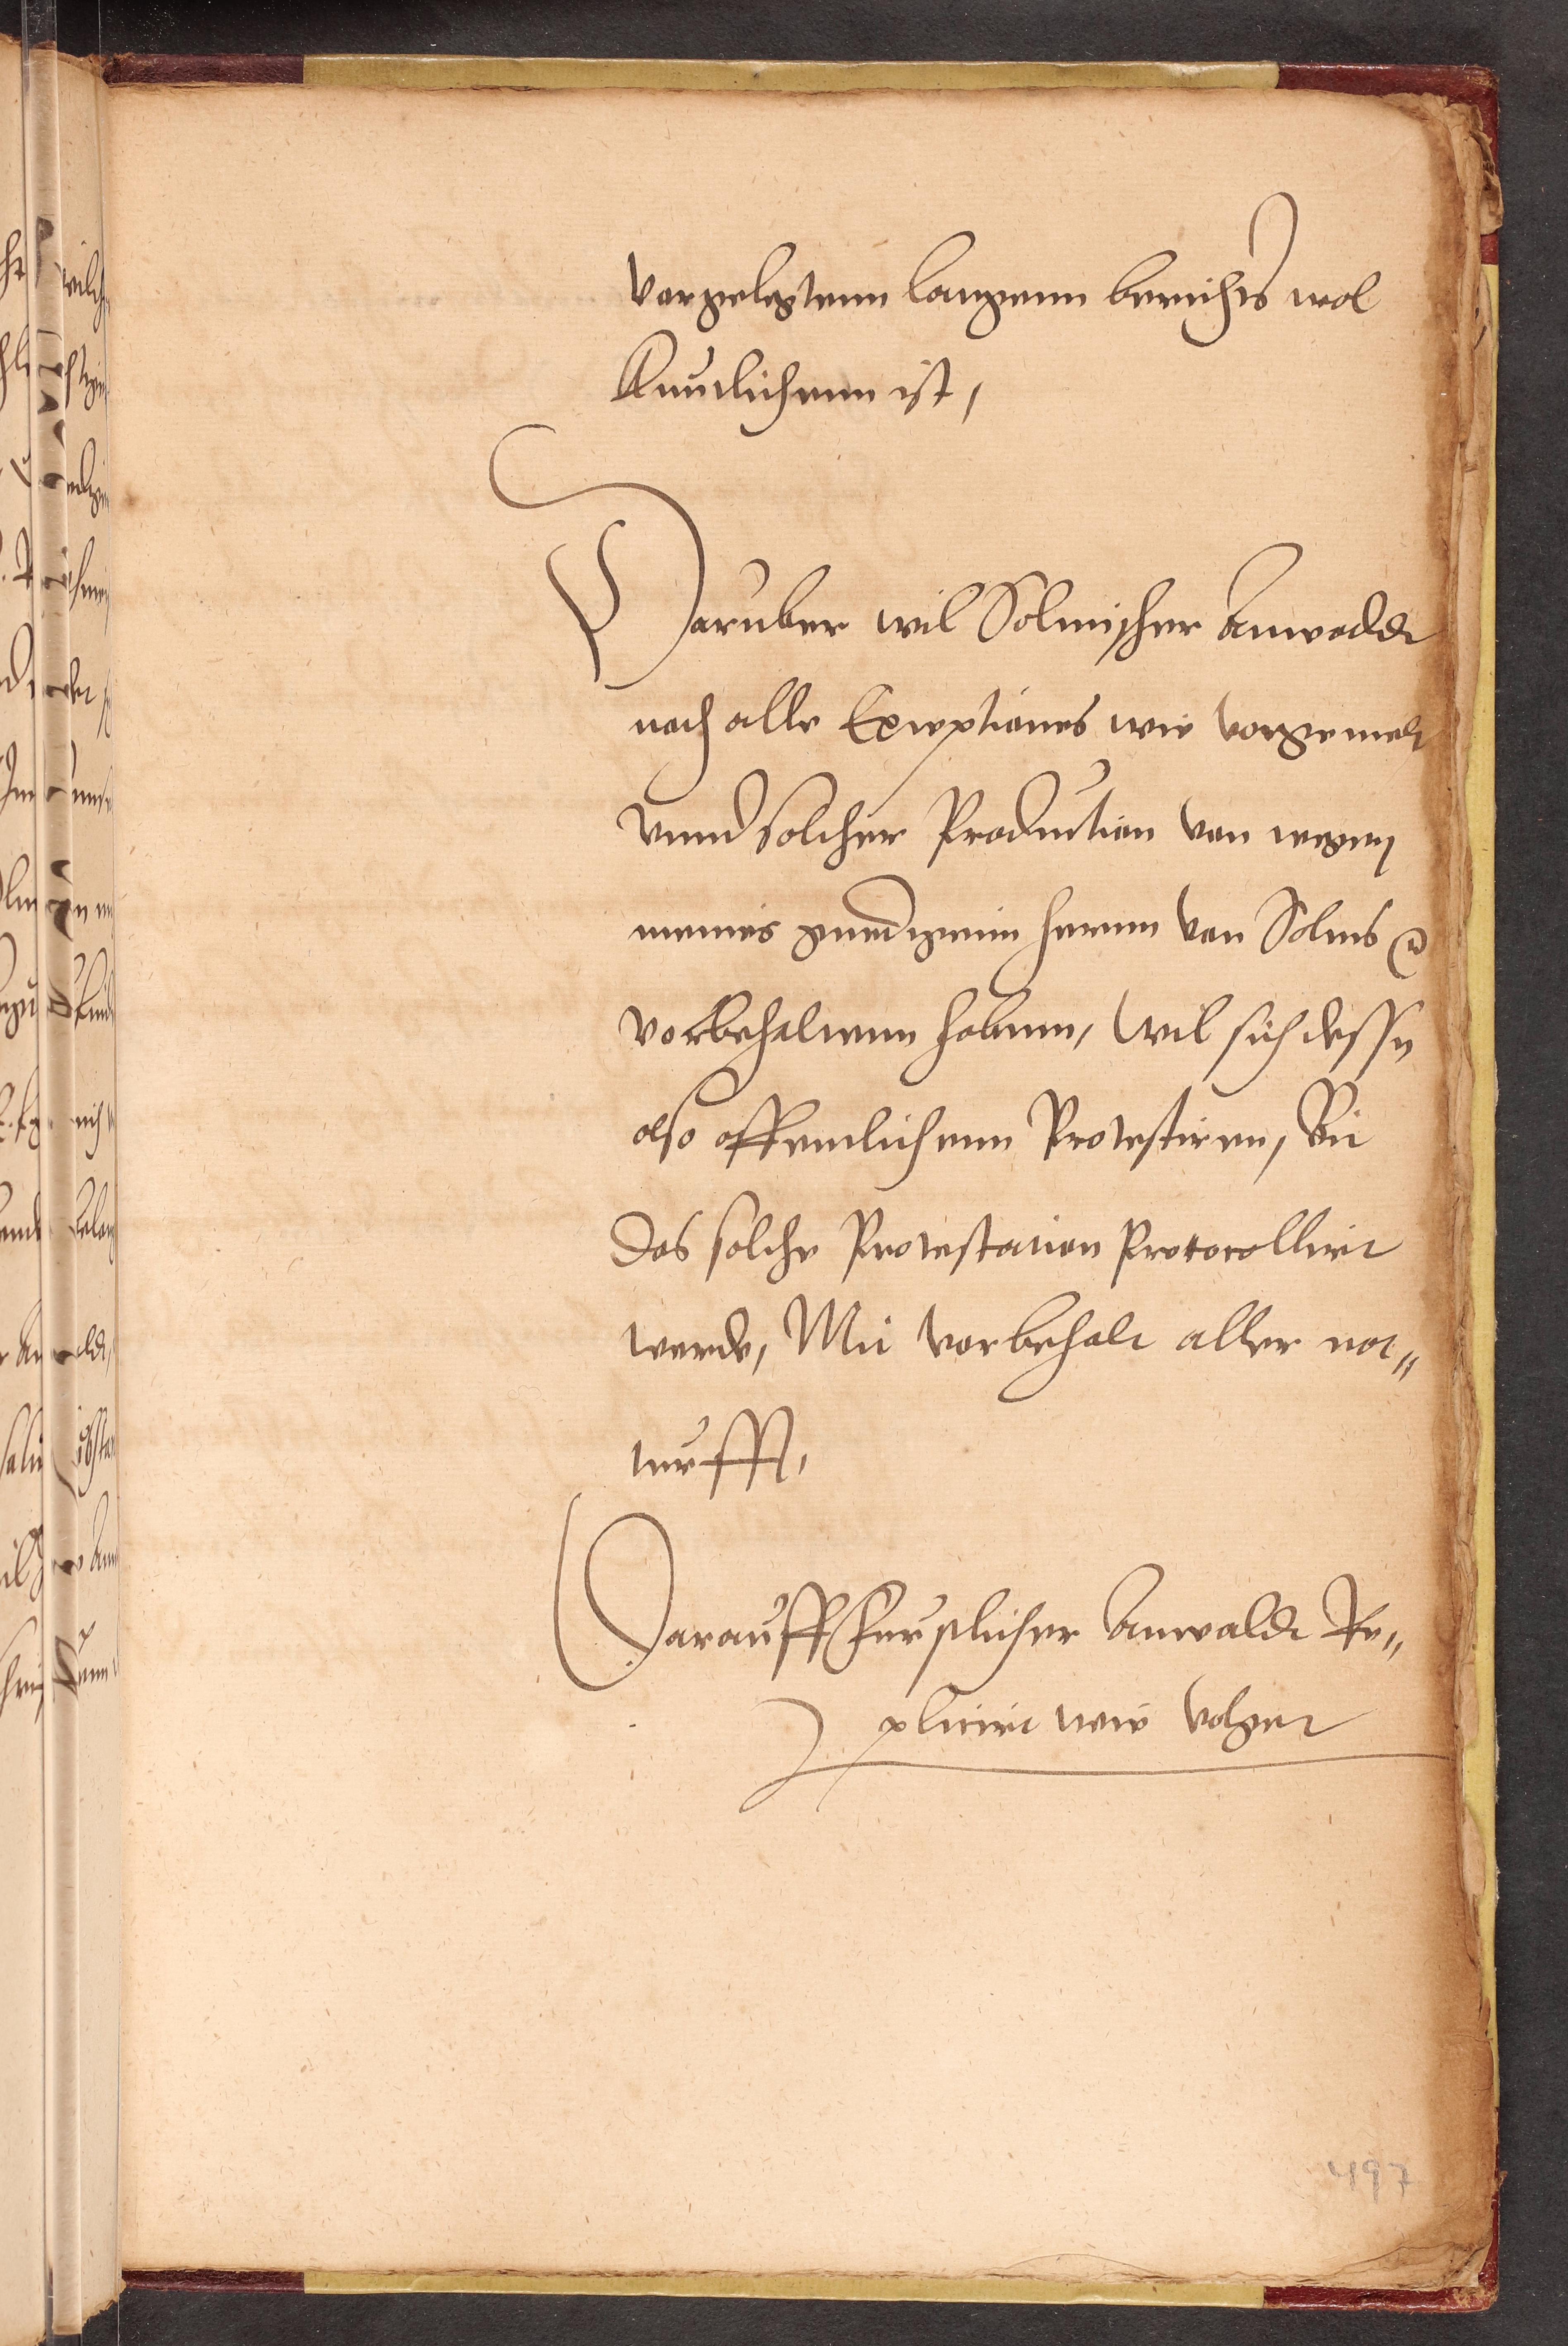 vorgelegtenn langenn berichts wol
kuntlichenn ist,
Daruber wil Solmischer Anwaldt
nach alle Exceptiones wie vorgemelt
vnnd solcher Production von wegen
meines gnedigenn hernn von Solms ꝛc
vorbehaltenn habenn, Wil sich dessen
also offentlichenn Protestiren, Bit
das solche Protestation Protocollirt
werde, Mit vorbehalt aller not„
turfft,
Darauff furstlicher Anwaldt Re„
plicirt wie volget
497